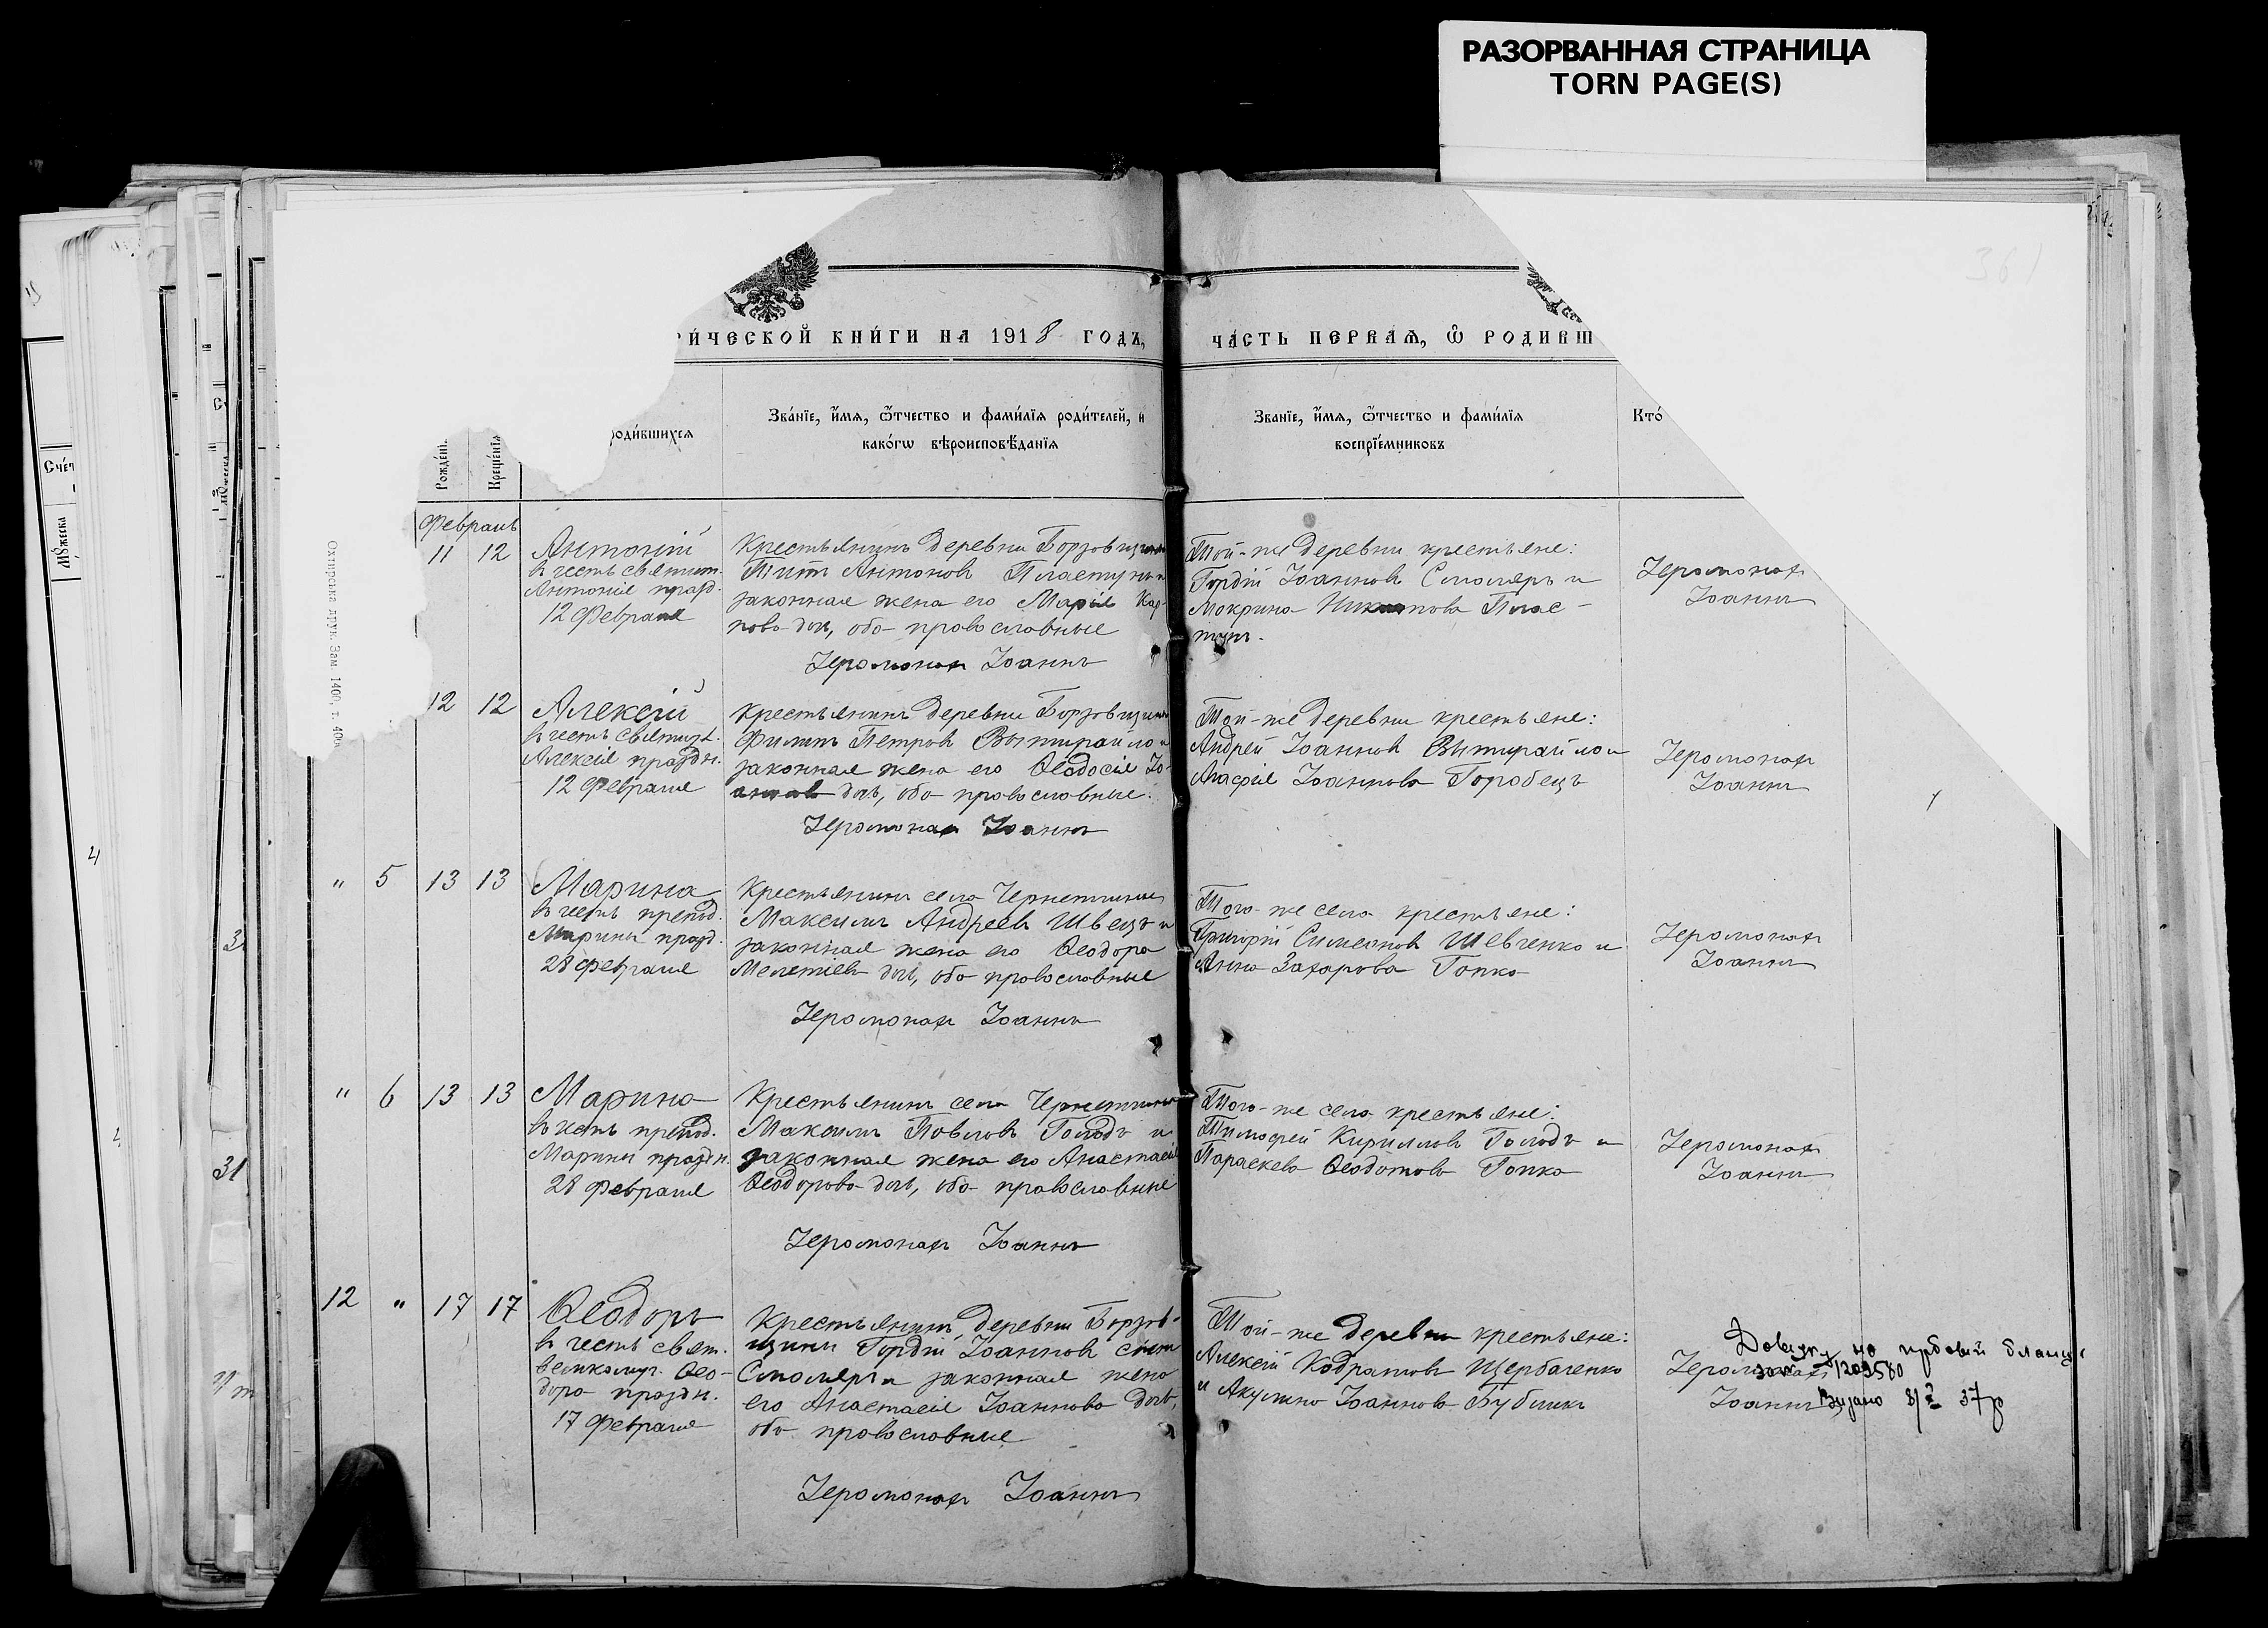 РАЗОРВАННАЯ СТРАНИЦА
TORN PAGE(S)
РИ́ЧЕСКОЙ КНИ́ГИ НА 1918 ГОДЪ,
ЧА́СТЬ ПЕРВАѦ, Ѽ РОДИВШ
Рожде́нїѧ
Креще́нїѧ
роди́вшихсѧ
Зва́нїе, и҆́мѧ, ѻ҆́тчество и фами́лїѧ роди́телей, и
како́гѡ вѣроисповѣ́данїѧ
Званїе, и҆́мѧ, ѻ҆́тчество и фами́лїѧ
воспрїе́мниковъ
Кто́
Счет
Мꙋжеска
Охтирська друк. Зам. 1400, т. 400
Февраль
11 12
Антоній
въ честь святит.
Антонія празд.
12 Февраля
Крестьянинъ деревни Борзовщины
Титъ Антоновъ Пластунъ и
законная жена его Марія Кар-
пова дочь, оба православные
Іеромонахъ Іоаннъ
Той-же деревни крестьяне:
Гордій Іоанновъ Смоляръ и
Мокрина Плас-
тунъ.
Іеромонахъ
Іоаннъ
12 12
Алексій
въ честь святит.
Алексія праздн.
12 Февраля
Крестьянинъ деревни Борзовщины
Филипъ Петровъ Вытирайло и
законная жена его Ѳеодосія Іо-
аннова дочь, оба православные.
Іеромонахъ Іоаннъ
Той-же деревни крестьяне:
Андрей Іоанновъ Вытирайло и
Агафія Іоаннова Горобецъ
Іеромонахъ
Іоаннъ
" 5 13 13
Марина
въ честь препод.
Марины празд.
28 Февраля
Крестьянинъ села Чернетчины
Максимъ Андреевъ Швецъ и
законная жена его Ѳеодора
Мелетіева дочь, оба православные
Іеромонахъ Іоаннъ
Того-же села крестьяне:
Григорій Симеоновъ Шевченко и
Анна Захарова Гопка
Іеромонахъ
Іоаннъ
" 6 13 13
Марина
въ честь препод.
Марины праздн.
28 Февраля
Крестьянинъ села Чернетчины
Максимъ Павловъ Голодъ и
законная жена его Анастасія
Ѳеодорова дочь, оба православные
Іеромонахъ Іоаннъ
Того-же села крестьяне:
Тимофей Кирилловъ Голодъ и
Параскева Ѳеодотова Гопка
Іеромонахъ
Іоаннъ
12 " 17 17
Ѳеодоръ
въ честь свят.
великомуч. Ѳео-
дора праздн.
17 Февраля
Крестьянинъ деревни Борзов-
щины Гордій Іоанновъ сынъ
Смоляръ и законная жена
его Анастасія Іоаннова дочь,
оба православные
Іеромонахъ Іоаннъ
Той-же деревни крестьяне:
Алексій Кодратовъ Щербаченко
и Акулина Іоаннова Бубликъ
Іеромонахъ
Іоаннъ
Довідку на
за № 1209580
Видано 37р